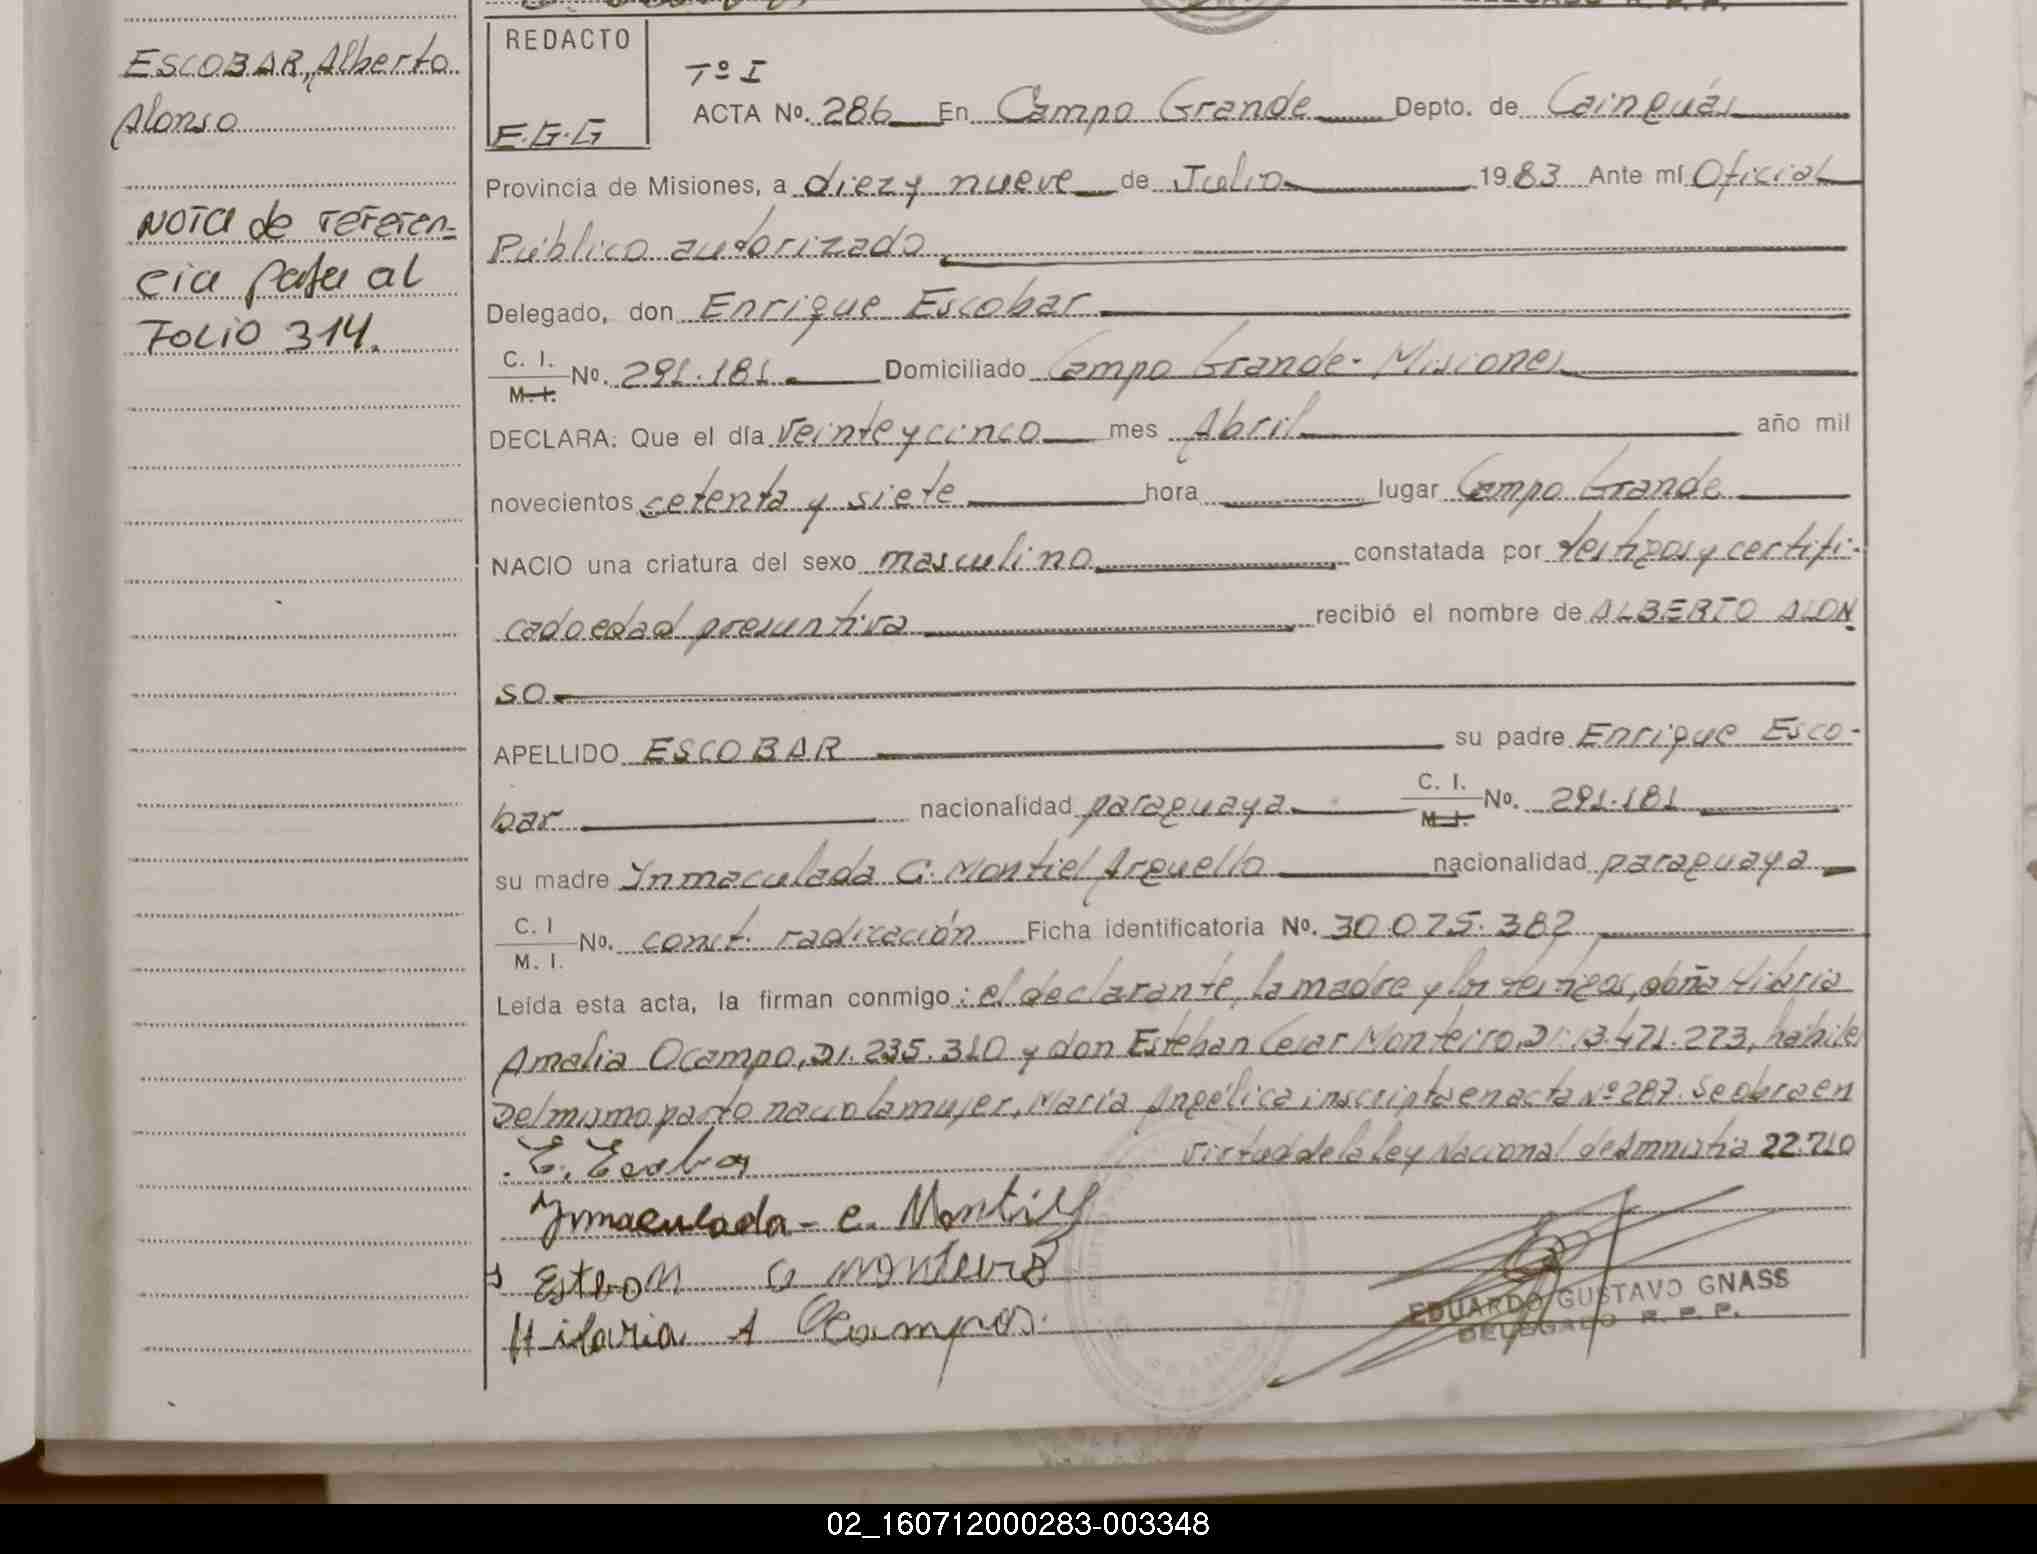 ESCOBAR, Alberto
Alonso
NOTA de referen-
cia pasa al
FOLIO 314.
REDACTO
E.G.G
Tº I
ACTA Nº. 286 En Campo Grande Depto. de Cainguás
Provincia de Misiones, a diez y nueve de Julio 1983 Ante mí Oficial
Público autorizado
Delegado, don Enrique Escobar
C. I. M. I. Nº. 291.181 Domiciliado Campo Grande - Misiones
DECLARA: Que el día veinte y cinco mes Abril año mil
novecientos cetenta y siete hora lugar Campo Grande
NACIO una criatura del sexo masculino constatada por testigos y certifi-
cado edad presuntiva recibió el nombre de ALBERTO ALON
SO
APELLIDO ESCOBAR su padre Enrique Esco-
bar nacionalidad paraguaya C. I. M. I. Nº. 291.181
su madre Ynmaculada C. Montiel Arguello nacionalidad paraguaya
C. I M. I. Nº. const. radicación Ficha identificatoria Nº. 30.075.382
Leída esta acta, la firman conmigo: el declarante, la madre y los testigos, doña Hilaria
Amalia Ocampo, DI. 235.310 y don Esteban Cesar Monteiro, DI: 13.471.273, hábiles
Del mismo parto nacio la mujer, María Angélica inscripta en acta Nº 287. Se obra en
virtud de la ley Nacional de Amnistia 22.710
E. Escobar
Ynmaculada - c. Montiel
Esteban C Monteiro
Hilaria A Ocampos.
EDUARDO GUSTAVO GNASS
DELEGADO R. P. P.
02_160712000283-003348